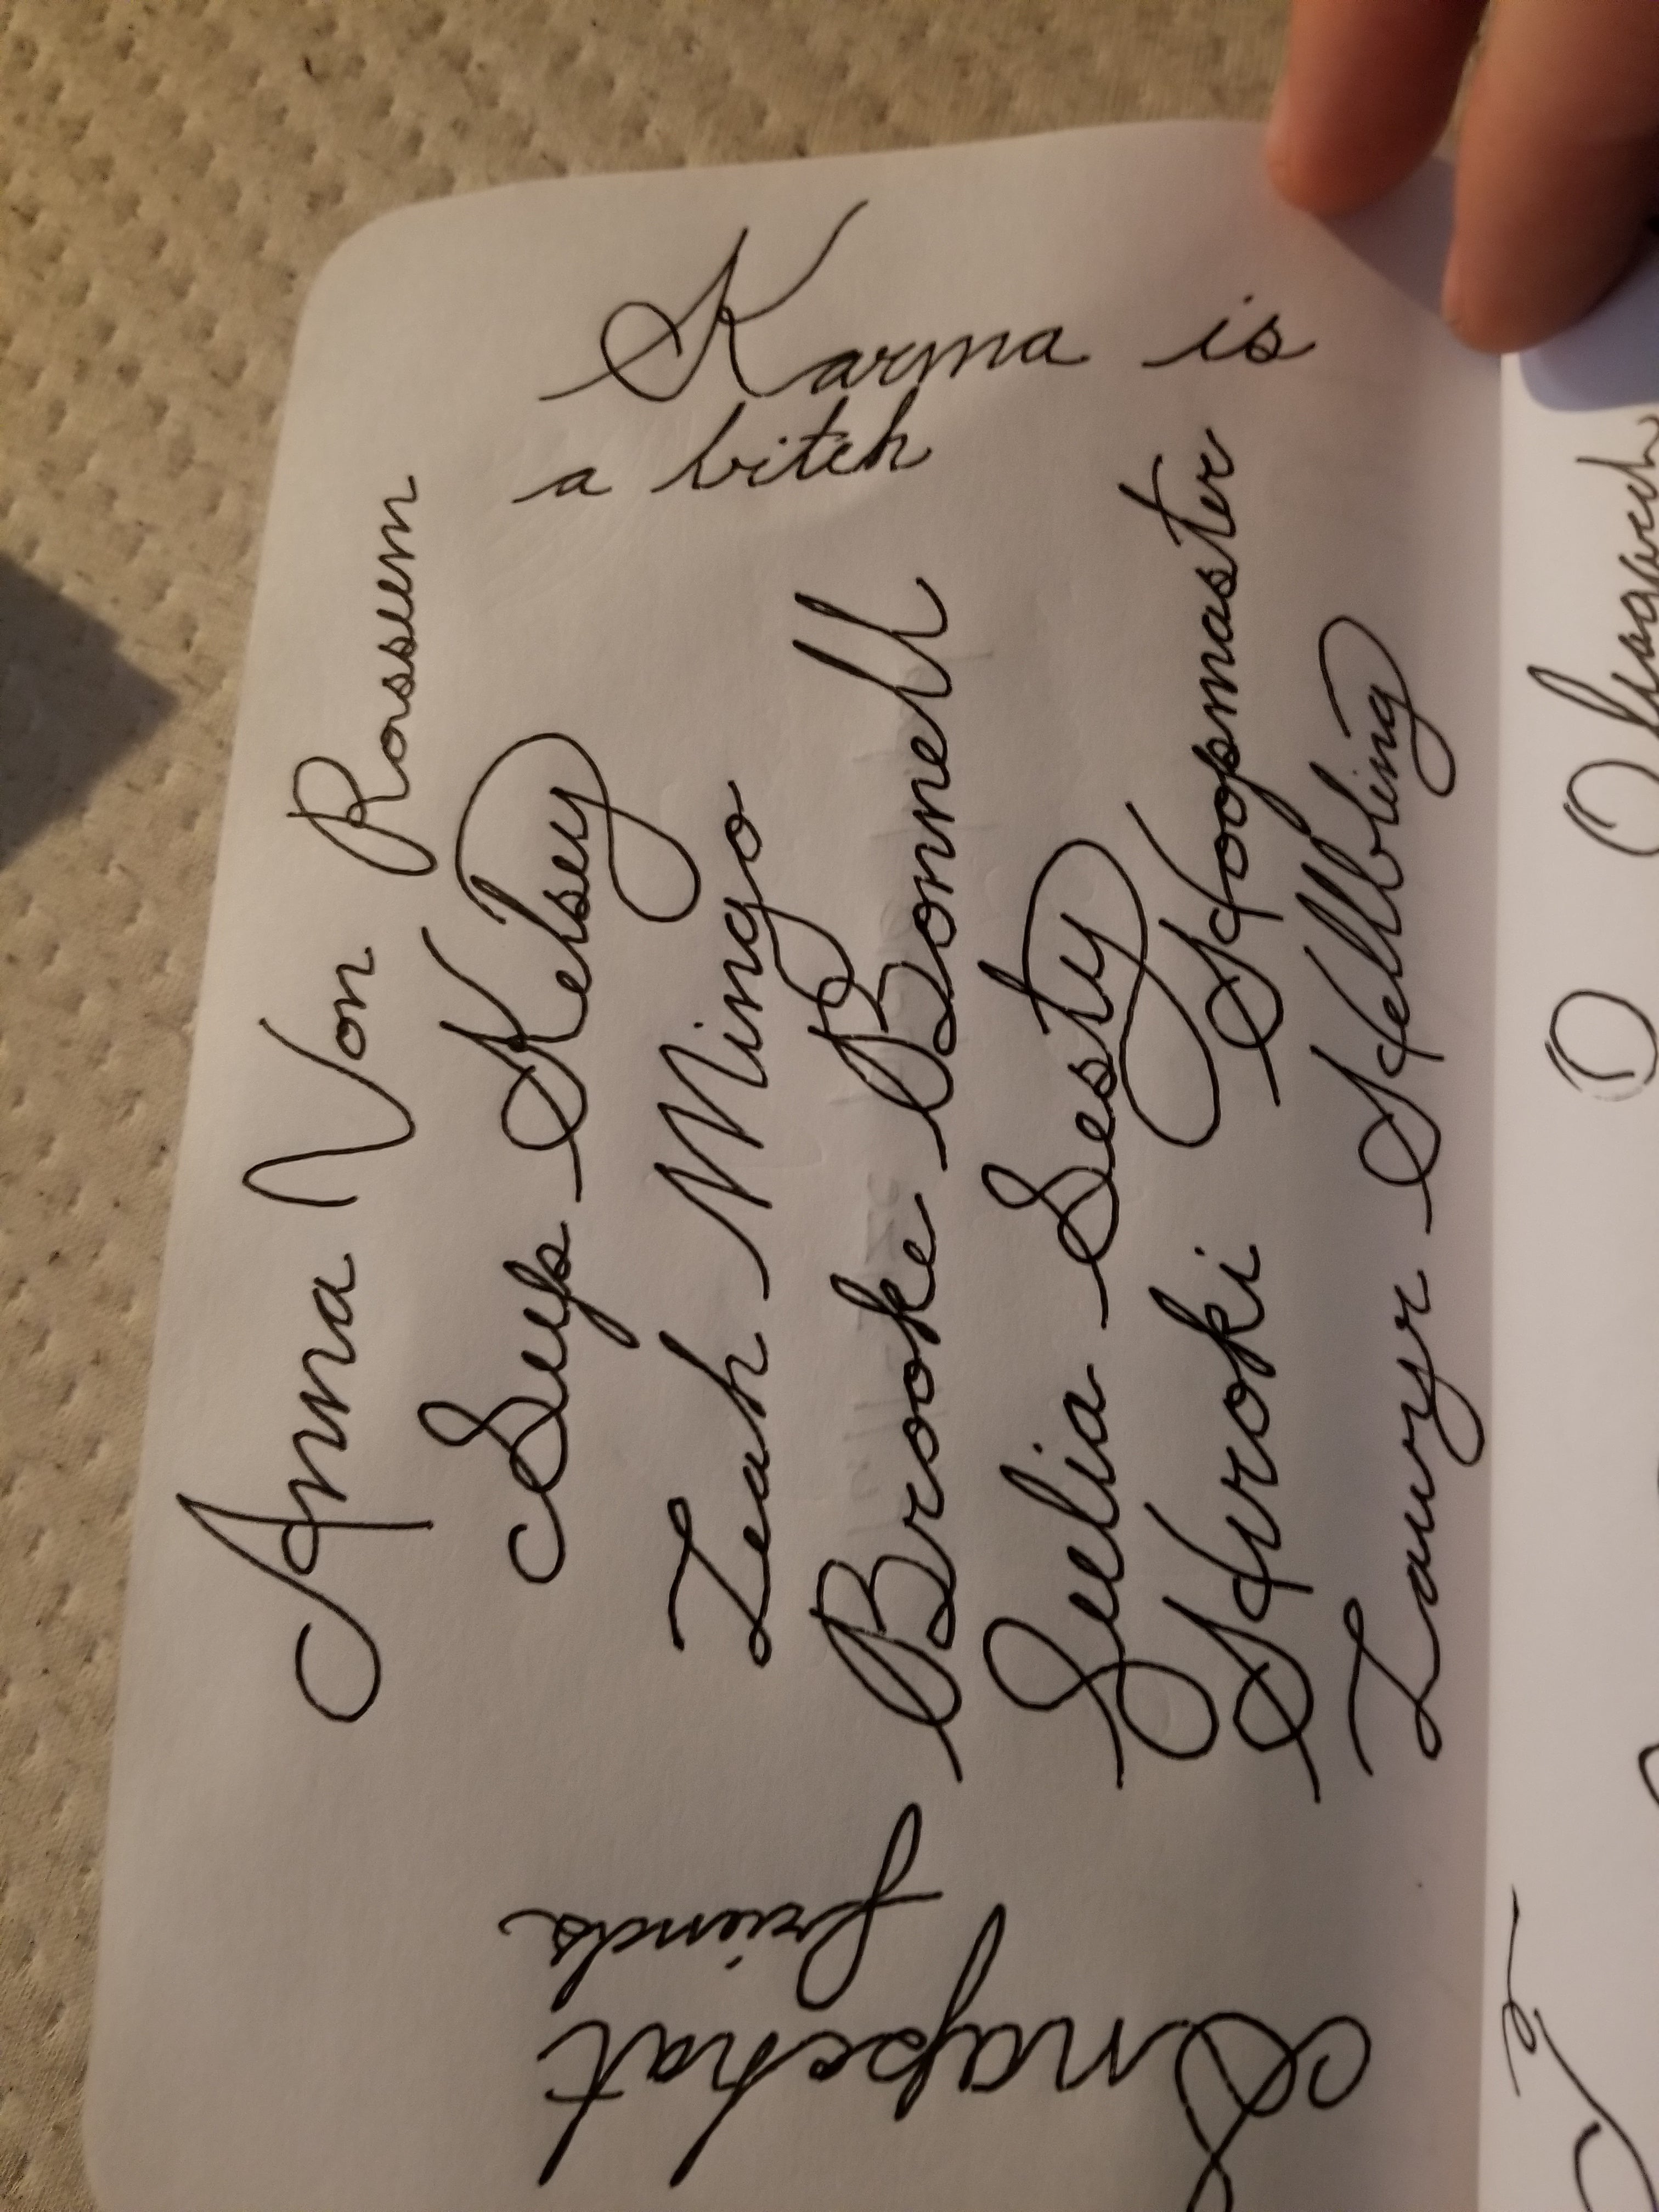 Karma is
a bitch
Anna Von Rossem
Suys Kelsey
Leah Mingo
Brooke Bonnell
Julia Sesty
Hroki Hoopmaster
Lauryn Hellbling
Snapchat
friends
Oligarch